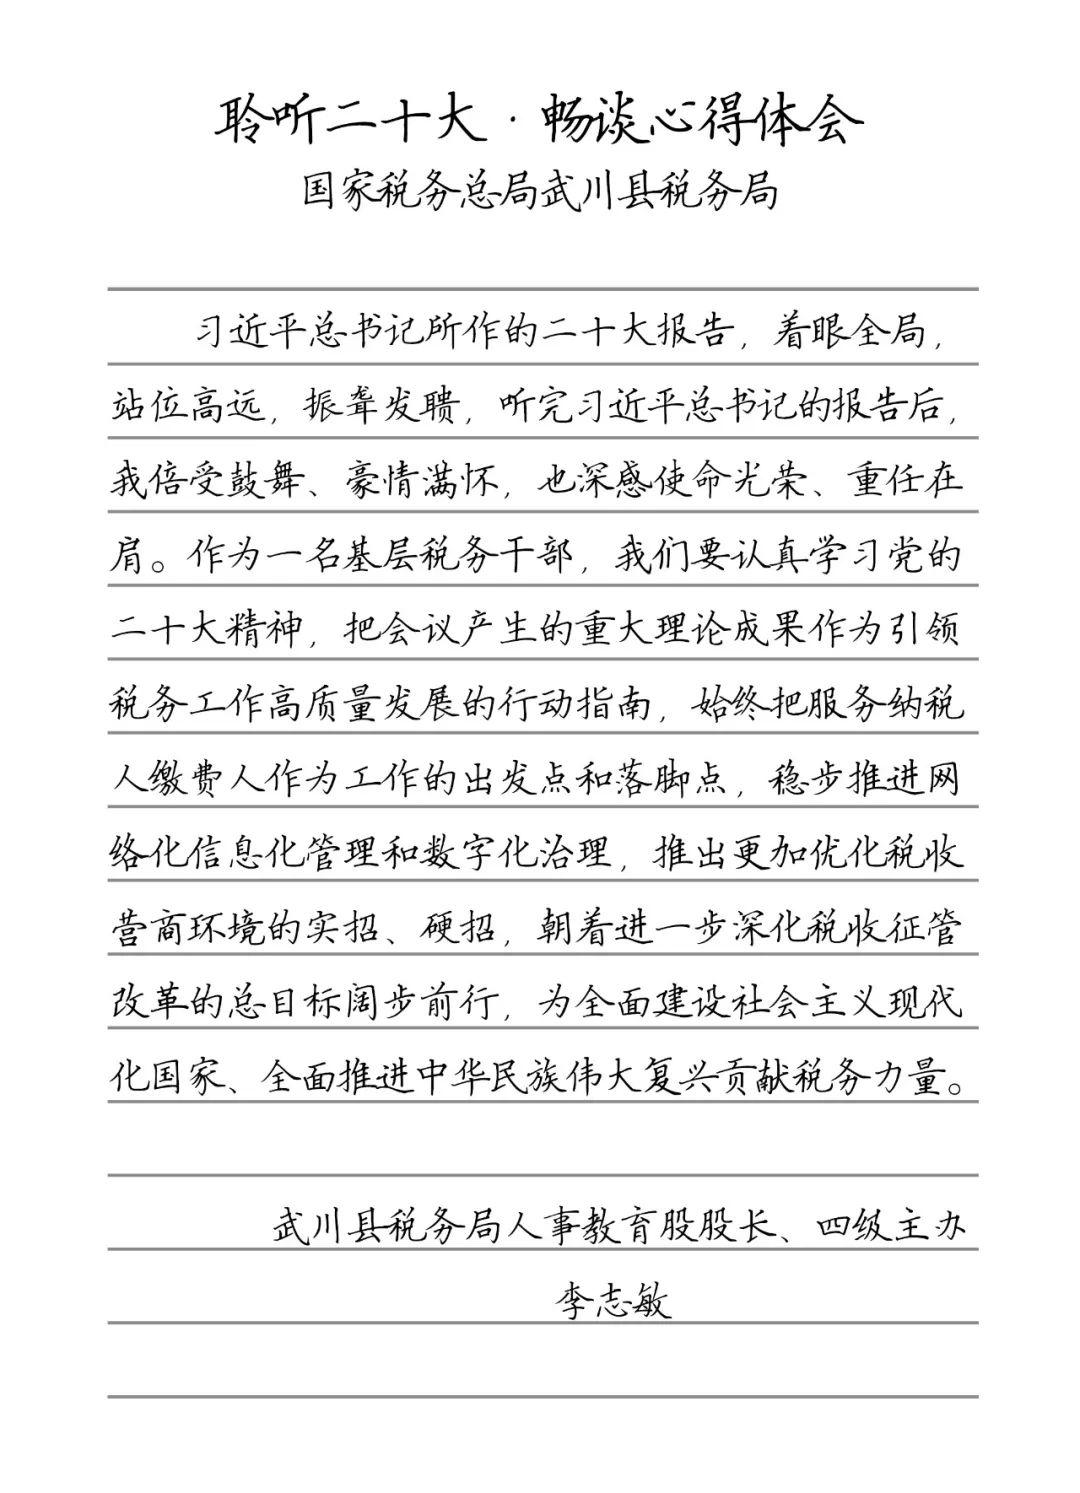 聆听二十大·畅谈心得体会
国家税务总局武川县税务局
习近平总书记所作的二十大报告，着眼全局，
站位高远，振聋发聩，听完习近平总书记的报告后，
我倍受鼓舞、豪情满怀，也深感使命光荣、重任在
肩。作为一名基层税务干部，我们要认真学习党的
二十大精神，把会议产生的重大理论成果作为引领
税务工作高质量发展的行动指南，始终把服务纳税
人缴费人作为工作的出发点和落脚点，稳步推进网
络化信息化管理和数字化治理，推出更加优化税收
营商环境的实招、硬招，朝着进一步深化税收征管
改革的总目标阔步前行，为全面建设社会主义现代
化国家、全面推进中华民族伟大复兴贡献税务力量。
武川县税务局人事教育股股长、四级主办
李志敏